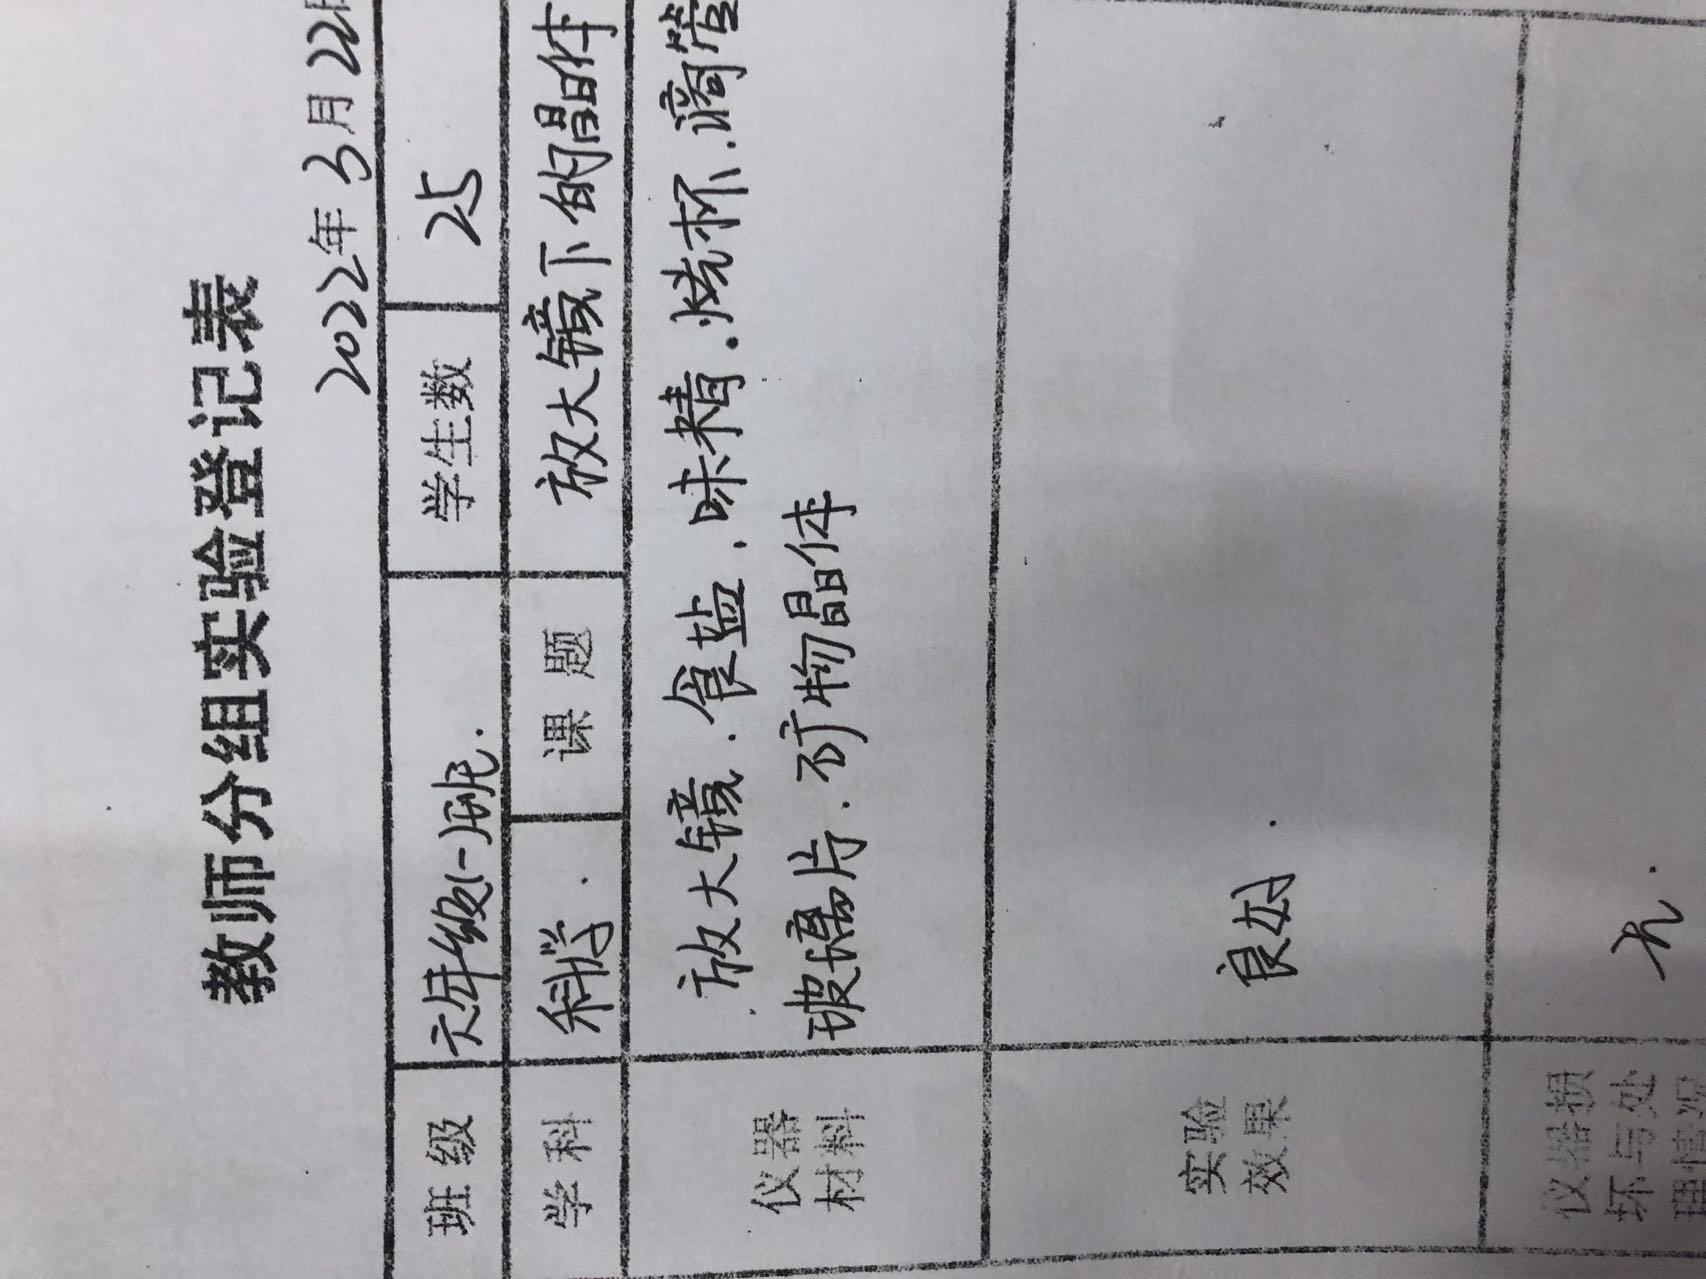 教师分组实验登记表
2022年3月22日
班级 六年级(一)班. 学生数 25
学科 科学. 课题 放大镜下的晶体
仪器材料 放大镜.食盐.味精.烧杯.滴管
玻璃片.矿物晶体
实验效果 良好.
仪器损坏与处理情况 无.